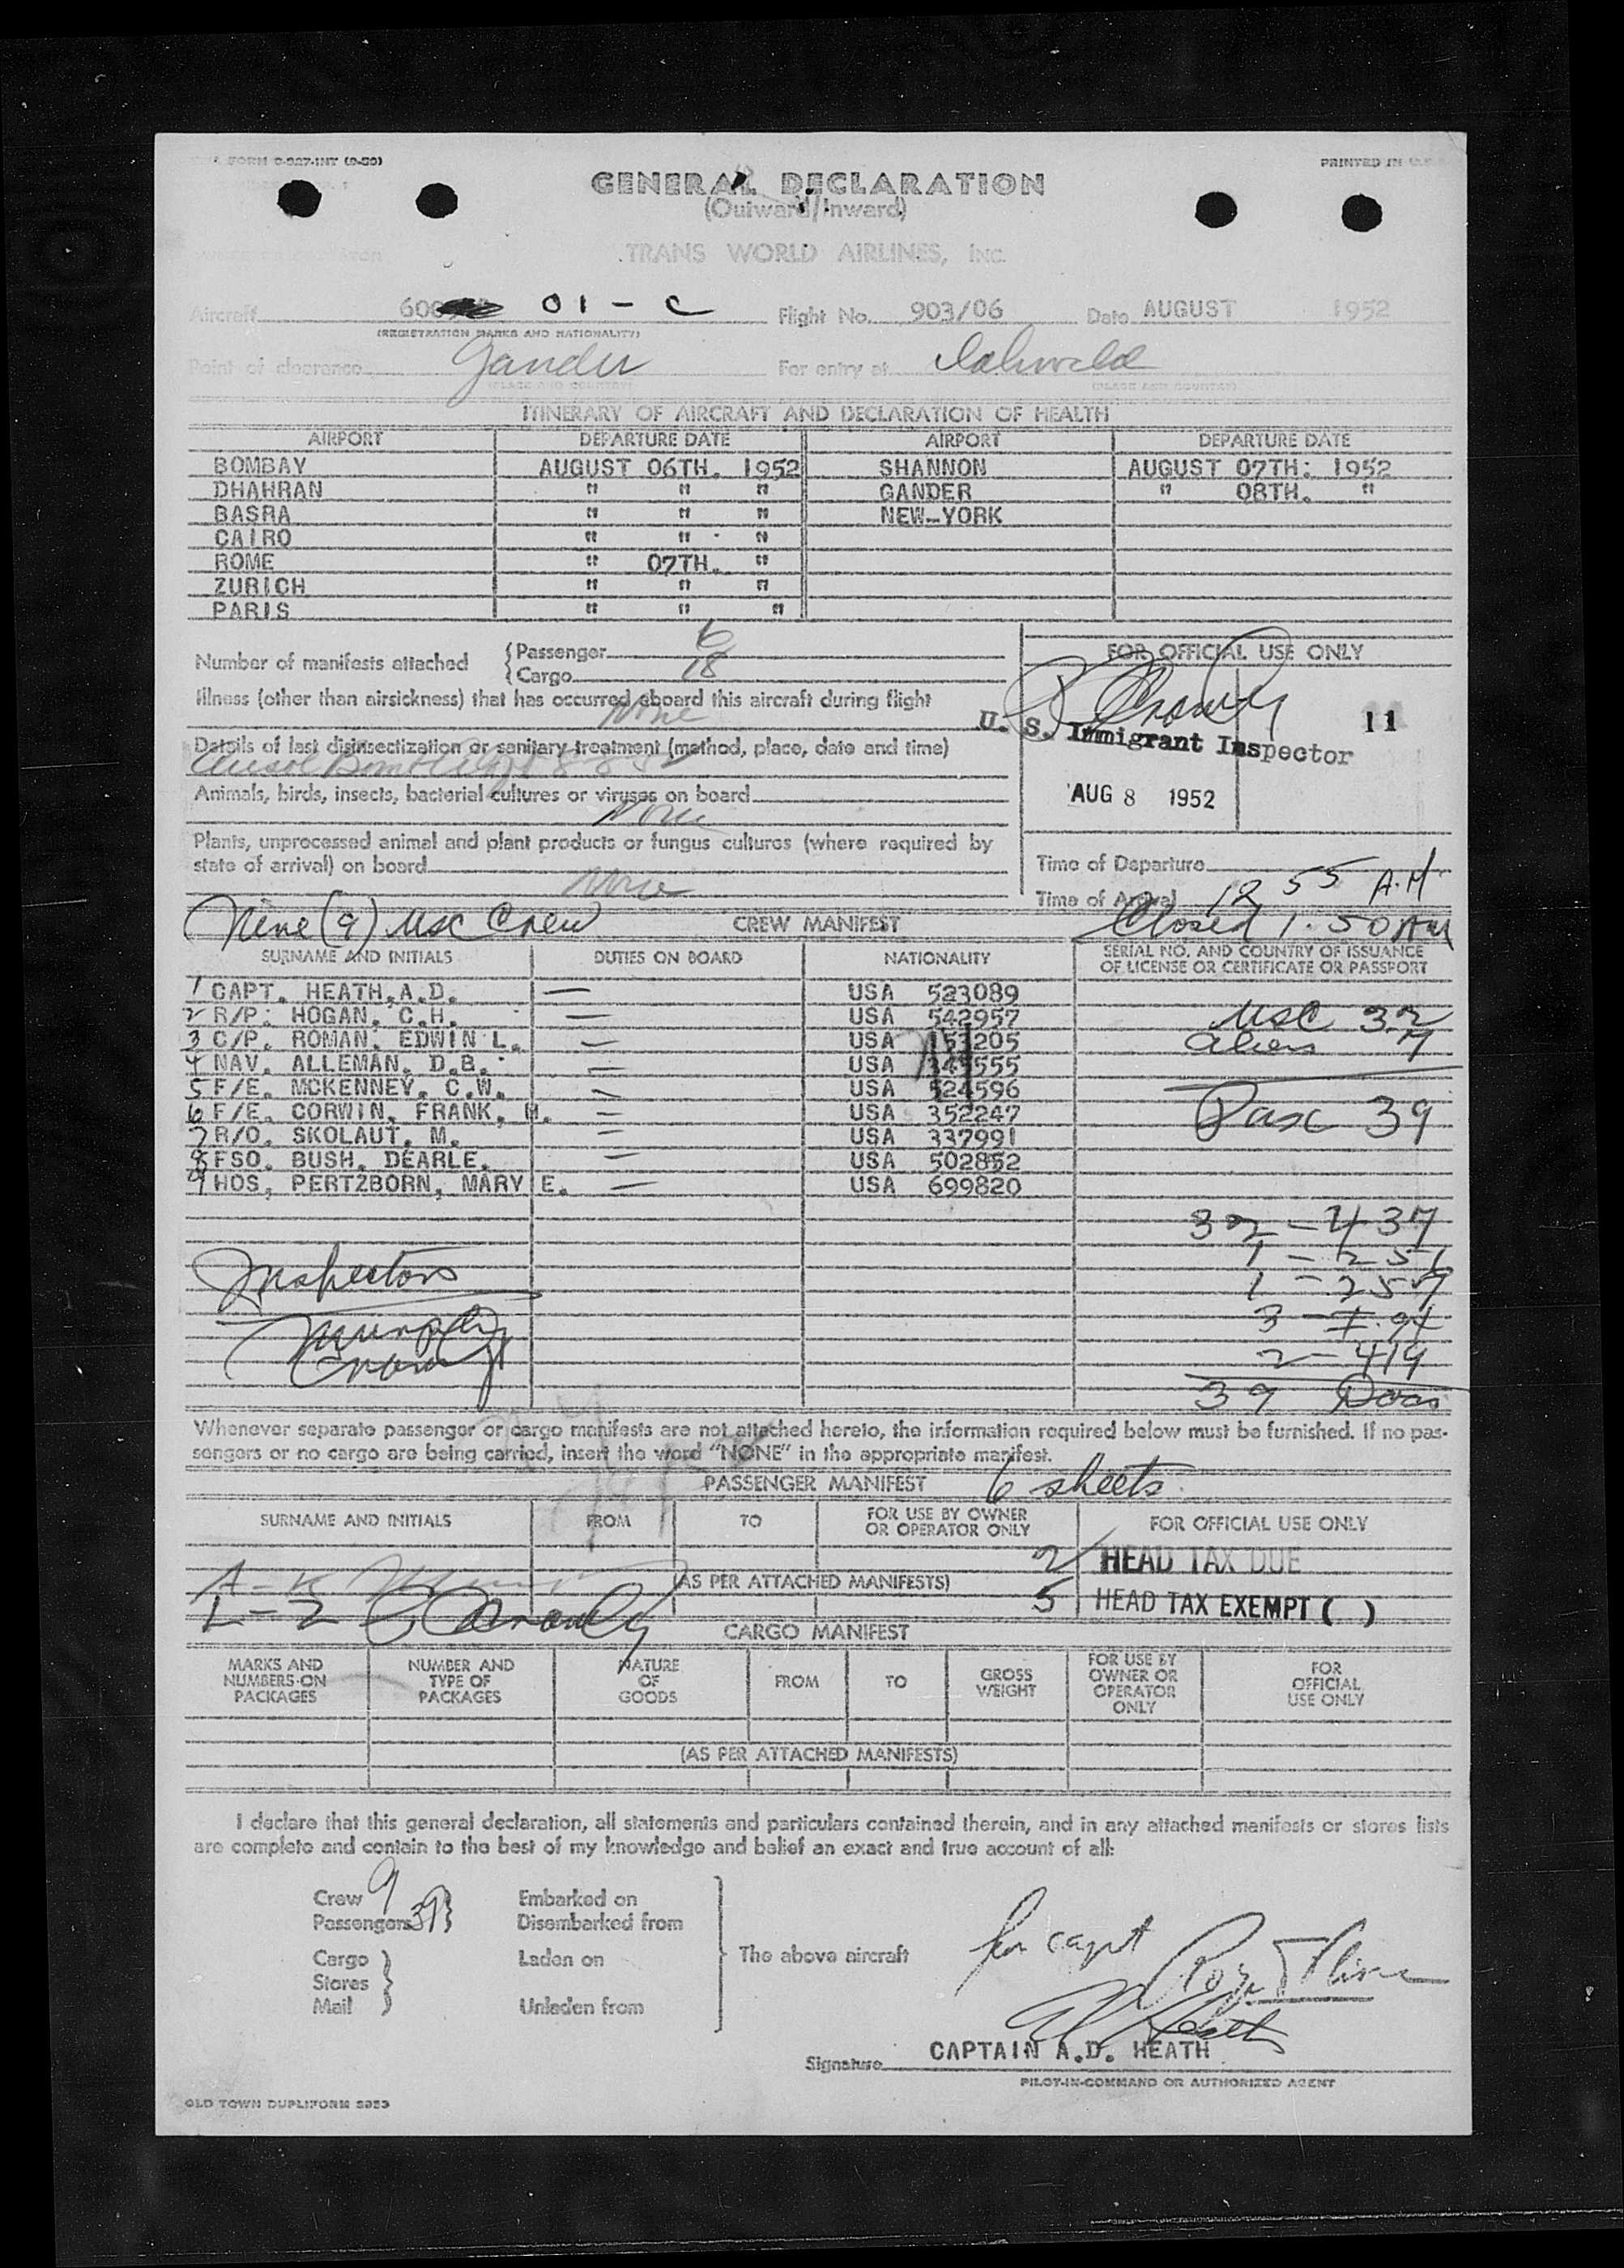 FORM O-927-INT (9-50)
PRINTED IN U.S.
GENERAL DECLARATION
(Outward/Inward)
TRANS WORLD AIRLINES, INC.
Aircraft 600 01 - C Flight No. 903/06 Date AUGUST 1952
(REGISTRATION MARKS AND NATIONALITY)
Point of clearance Gander For entry at Idlewild
(PLACE AND COUNTRY) (PLACE AND COUNTRY)
ITINERARY OF AIRCRAFT AND DECLARATION OF HEALTH
AIRPORT DEPARTURE DATE AIRPORT DEPARTURE DATE
BOMBAY AUGUST 06TH. 1952 SHANNON AUGUST 07TH: 1952
DHAHRAN " " " GANDER " 08TH. "
BASRA " " " NEW-YORK
CAIRO " " "
ROME " 07TH. "
ZURICH " " "
PARIS " " "
Number of manifests attached { Passenger 6
{ Cargo 18
FOR OFFICIAL USE ONLY
Illness (other than airsickness) that has occurred aboard this aircraft during flight
None
U. S. Immigrant Inspector 11
Details of last disinsectization or sanitary treatment (method, place, date and time)
Animals, birds, insects, bacterial cultures or viruses on board
None
AUG 8 1952
Plants, unprocessed animal and plant products or fungus cultures (where required by
state of arrival) on board
None
Time of Departure
Time of Arrival 12 55 A.M.
Nine (9) USC Crew CREW MANIFEST Closed 1.50 AM
SURNAME AND INITIALS DUTIES ON BOARD NATIONALITY SERIAL NO. AND COUNTRY OF ISSUANCE
OF LICENSE OR CERTIFICATE OR PASSPORT
1 CAPT. HEATH,A.D. — USA 523089
2 R/P: HOGAN, C.H. — USA 542957 USC 32
3 C/P. ROMAN. EDWIN L. — USA 153205 Aliens 7
4 NAV. ALLEMAN. D.B. — USA 349555
5 F/E. MCKENNEY, C.W. — USA 524596
6 F/E. CORWIN, FRANK, H. — USA 352247 Pax 39
7 R/O. SKOLAUT. M. — USA 337991
8 FSO. BUSH. DEARLE. — USA 502852
9 HOS, PERTZBORN, MARY E. — USA 699820
32 - I-437
1 - 251
1 - 257
3 - I-94
2 - 419
39 Docs
Inspectors
Murphy
Crowley
Whenever separate passenger or cargo manifests are not attached hereto, the information required below must be furnished. If no pas-
sengers or no cargo are being carried, insert the word "NONE" in the appropriate manifest.
PASSENGER MANIFEST 6 sheets
SURNAME AND INITIALS FROM TO FOR USE BY OWNER
OR OPERATOR ONLY FOR OFFICIAL USE ONLY
2 HEAD TAX DUE
A - K (AS PER ATTACHED MANIFESTS)
L - Z Crowley 5 HEAD TAX EXEMPT ( )
CARGO MANIFEST
MARKS AND
NUMBERS ON
PACKAGES NUMBER AND
TYPE OF
PACKAGES NATURE
OF
GOODS FROM TO GROSS
WEIGHT FOR USE BY
OWNER OR
OPERATOR
ONLY FOR
OFFICIAL
USE ONLY
(AS PER ATTACHED MANIFESTS)
I declare that this general declaration, all statements and particulars contained therein, and in any attached manifests or stores lists
are complete and contain to the best of my knowledge and belief an exact and true account of all:
Crew 9 Embarked on
Passengers 39 } Disembarked from
Cargo Laden on
Stores } The above aircraft
Mail Unladen from
for capt
CAPTAIN A.D. HEATH
Signature
PILOT-IN-COMMAND OR AUTHORIZED AGENT
OLD TOWN DUPLIFORM